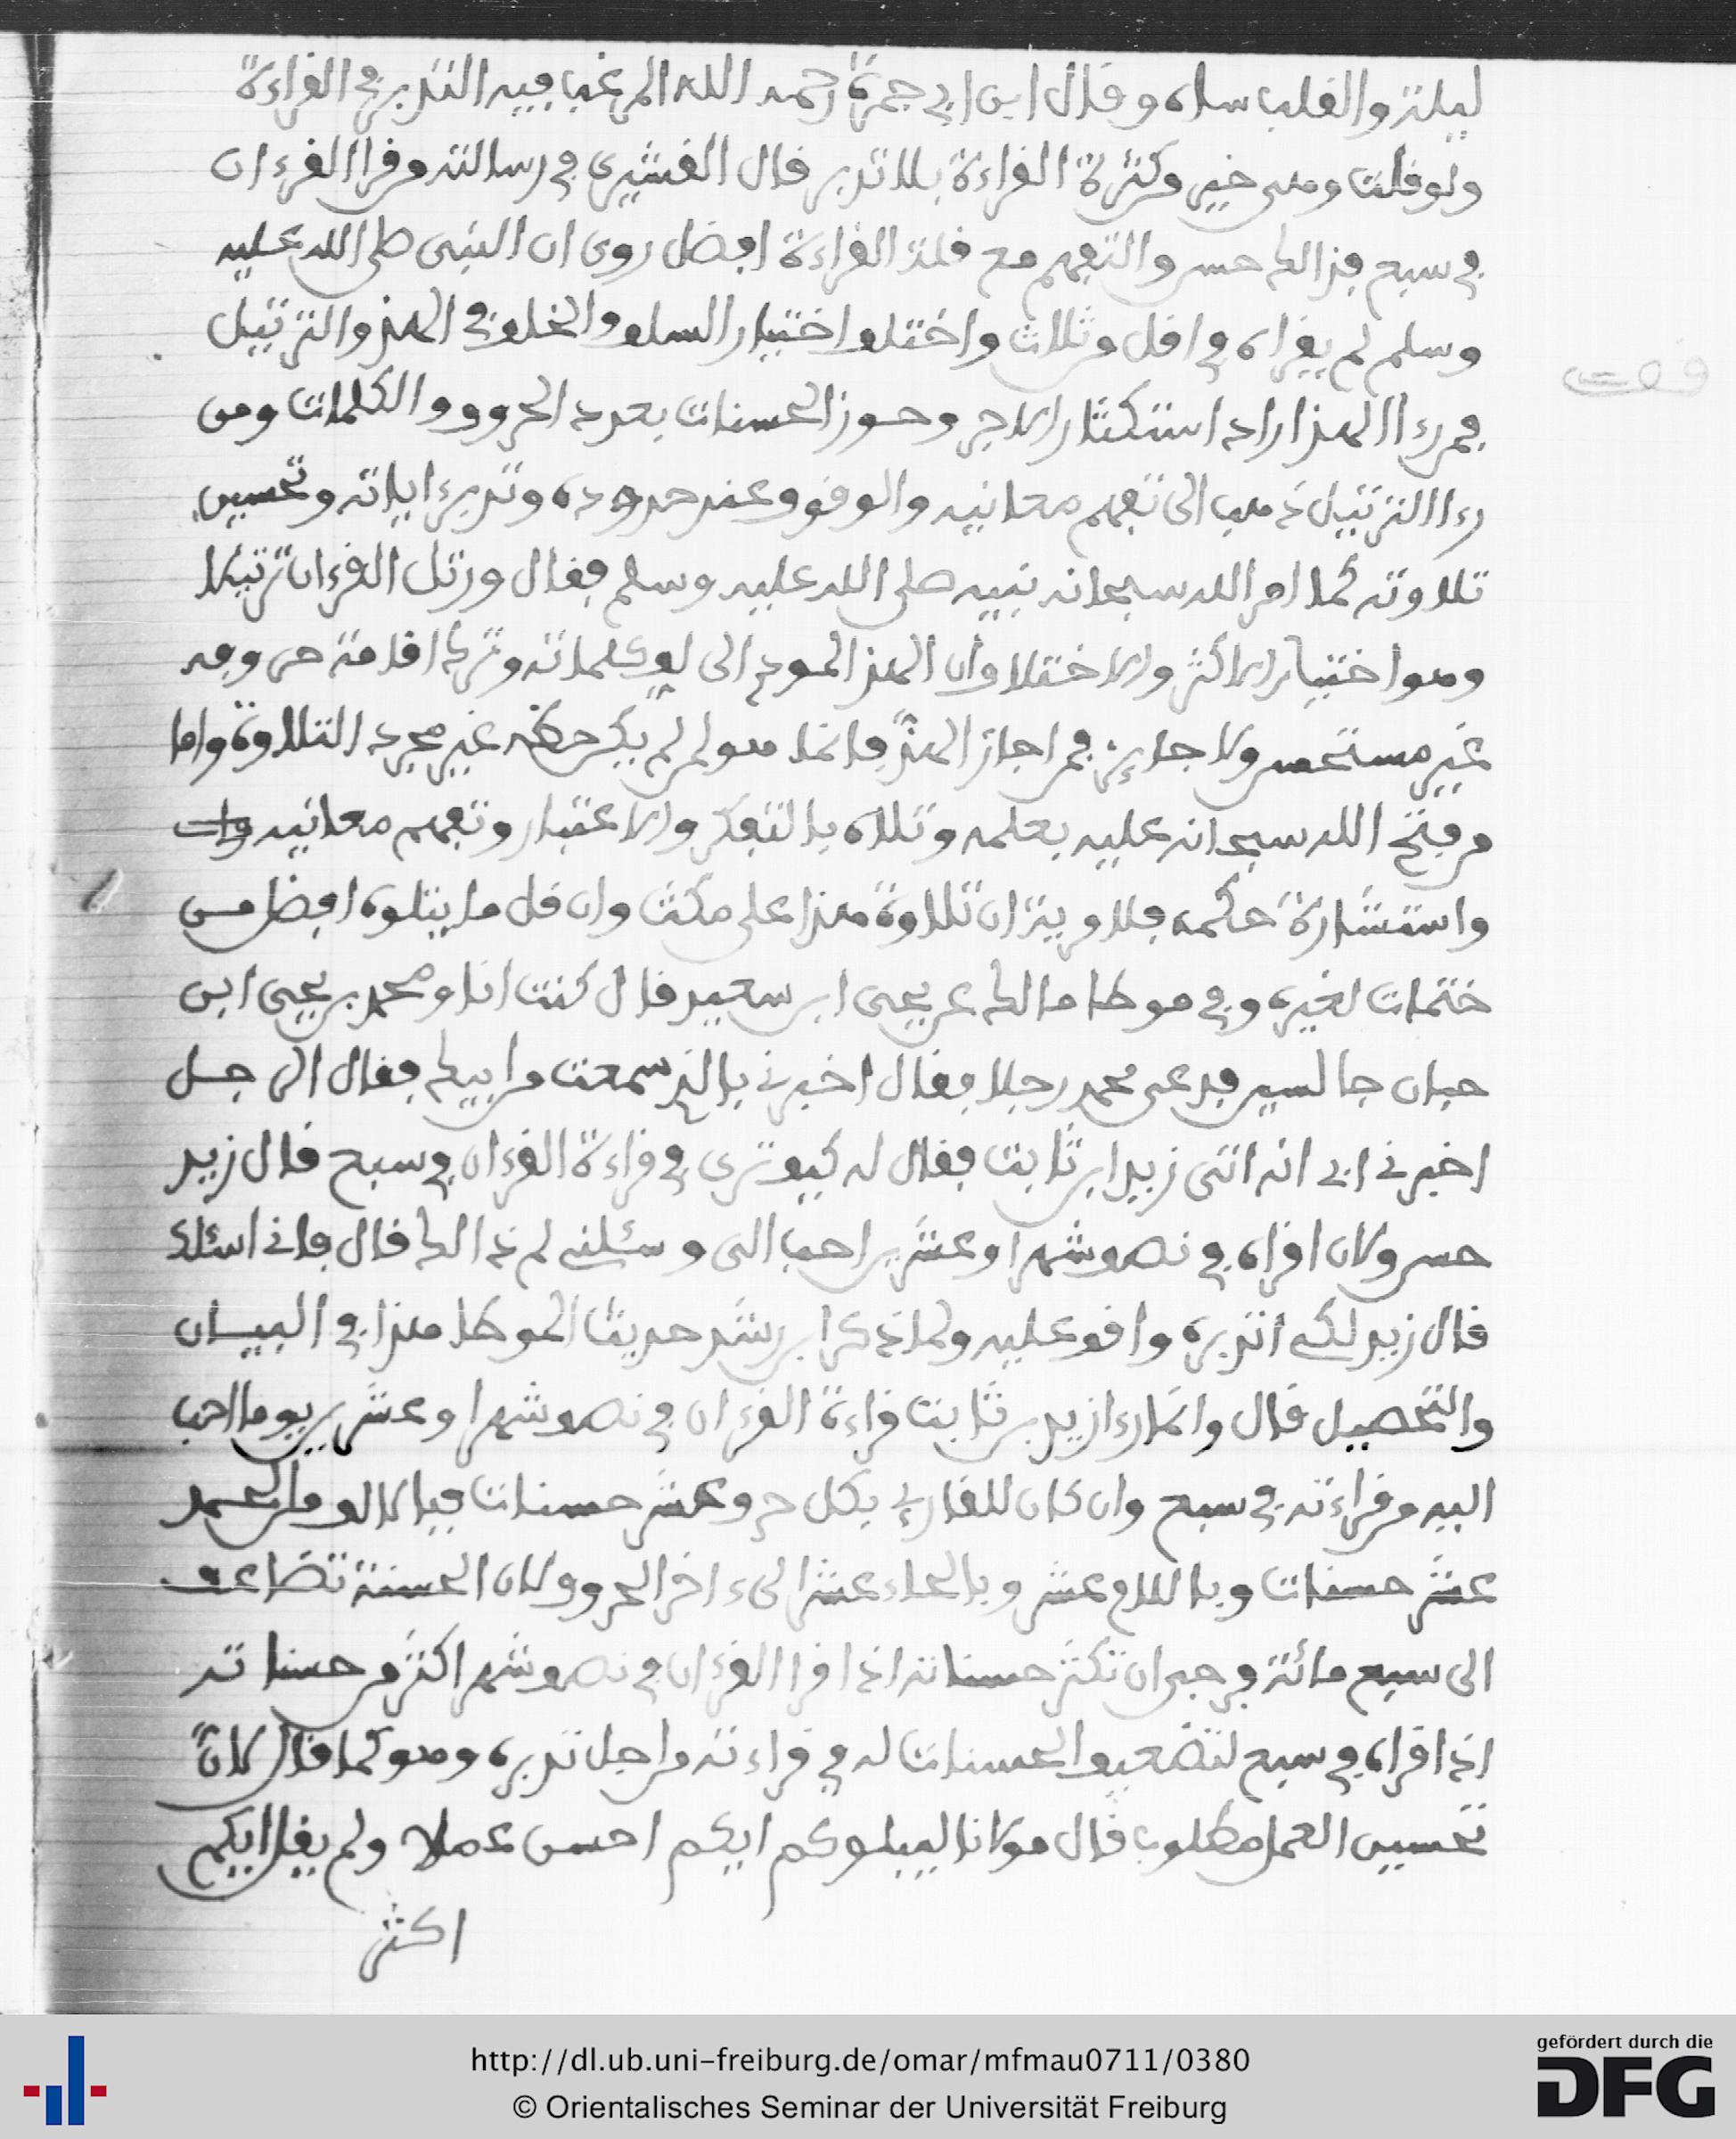 ليلة والقلب ساه وقال ابن ابي جمرة رحمه الله المرغب فيه التدبر في القراءة
ولو قلت وهي خير وكثرة القراءة بلا تدبر قال القشيري في رسالته وقرا القرءان
في سبع فذالك حسن والتفهم مع قلة القراءة افضل روى ان النبي صلى الله عليه
وسلم لم يقراه في اقل من ثلاث واختلف اختيار السلف والخلف في الهذ والترتيل
فمن رءا الهذ اراد استكثار الاجر وحوز الحسنات بعدد الحروف والكلمات ومن
رءا الترتيل ذهب الى تفهم معانيه والوقوف عند حدوده وتدبر ءاياته وتحسين
تلاوته كما امر الله سبحانه نبيه صلى الله عليه وسلم فقال ورتل القرءان ترتيلا
وهو اختيار الاكثر والاختلاف ان الهذ المودي الى لوك كلماته وترك اقامة حروفه
غير مستحسن ولا جايز فمن اجاز الهذ فانما هو لمن لم يكن حظه غير مجرد التلاوة واما
من فتح الله سبحانه عليه بعلمه وتلاه بالتفكر والاعتبار وتفهم معانيه
واستشارة حكمه فلا مرية ان تلاوة هذا على مكث وان قل ما يتلوه افضل من
ختمات لغيره وفي موطا مالك عن يحيى ابن سعيد قال كنت انا ومحمد بن يحيى ابن
حبان جالسين فدعى محمد رجلا فقال اخبرني بالذي سمعت من ابيك فقال الرجل
اخبرني ابي انه اتى زيد ابن ثابت فقال له كيف ترى في قراءة القرءان في سبع قال زيد
حسن ولان اقراه في نصف شهر او عشرين احب الي وسئلني لم ذالك قال فاني اسئلك
قال زيد لكي اتدبره واقف عليه ولما ذكر ابن رشد حديث الموطا هذا في البيان
والتحصيل قال وانما رءا زيد بن ثابت قراءة القرءان في نصف شهر او عشرين يوما احب
اليه من قراءته في سبع وان كان للقارئ بكل حرف عشر حسنات فبالالف من الحمد
عشر حسنات وباللام عشر وبالحاء عشر الى ءاخر الحروف لان الحسنة تضاعف
الى سبع مائة فوجب ان تكثر حسناته اذا قرا القرءان في نصف شهر اكثر من حسناته
اذا قراه في سبع لتضعيف الحسنات له في قراءته من اجل تدبره وهو كما قال لان
تحسين العمل مطلوب قال مولانا ليبلوكم ايكم احسن عملا ولم يقل ايكم
اكثر
وقفت
http://dl.ub.uni-freiburg.de/omar/mfmau0711/0380
© Orientalisches Seminar der Universität Freiburg
gefördert durch die
DFG